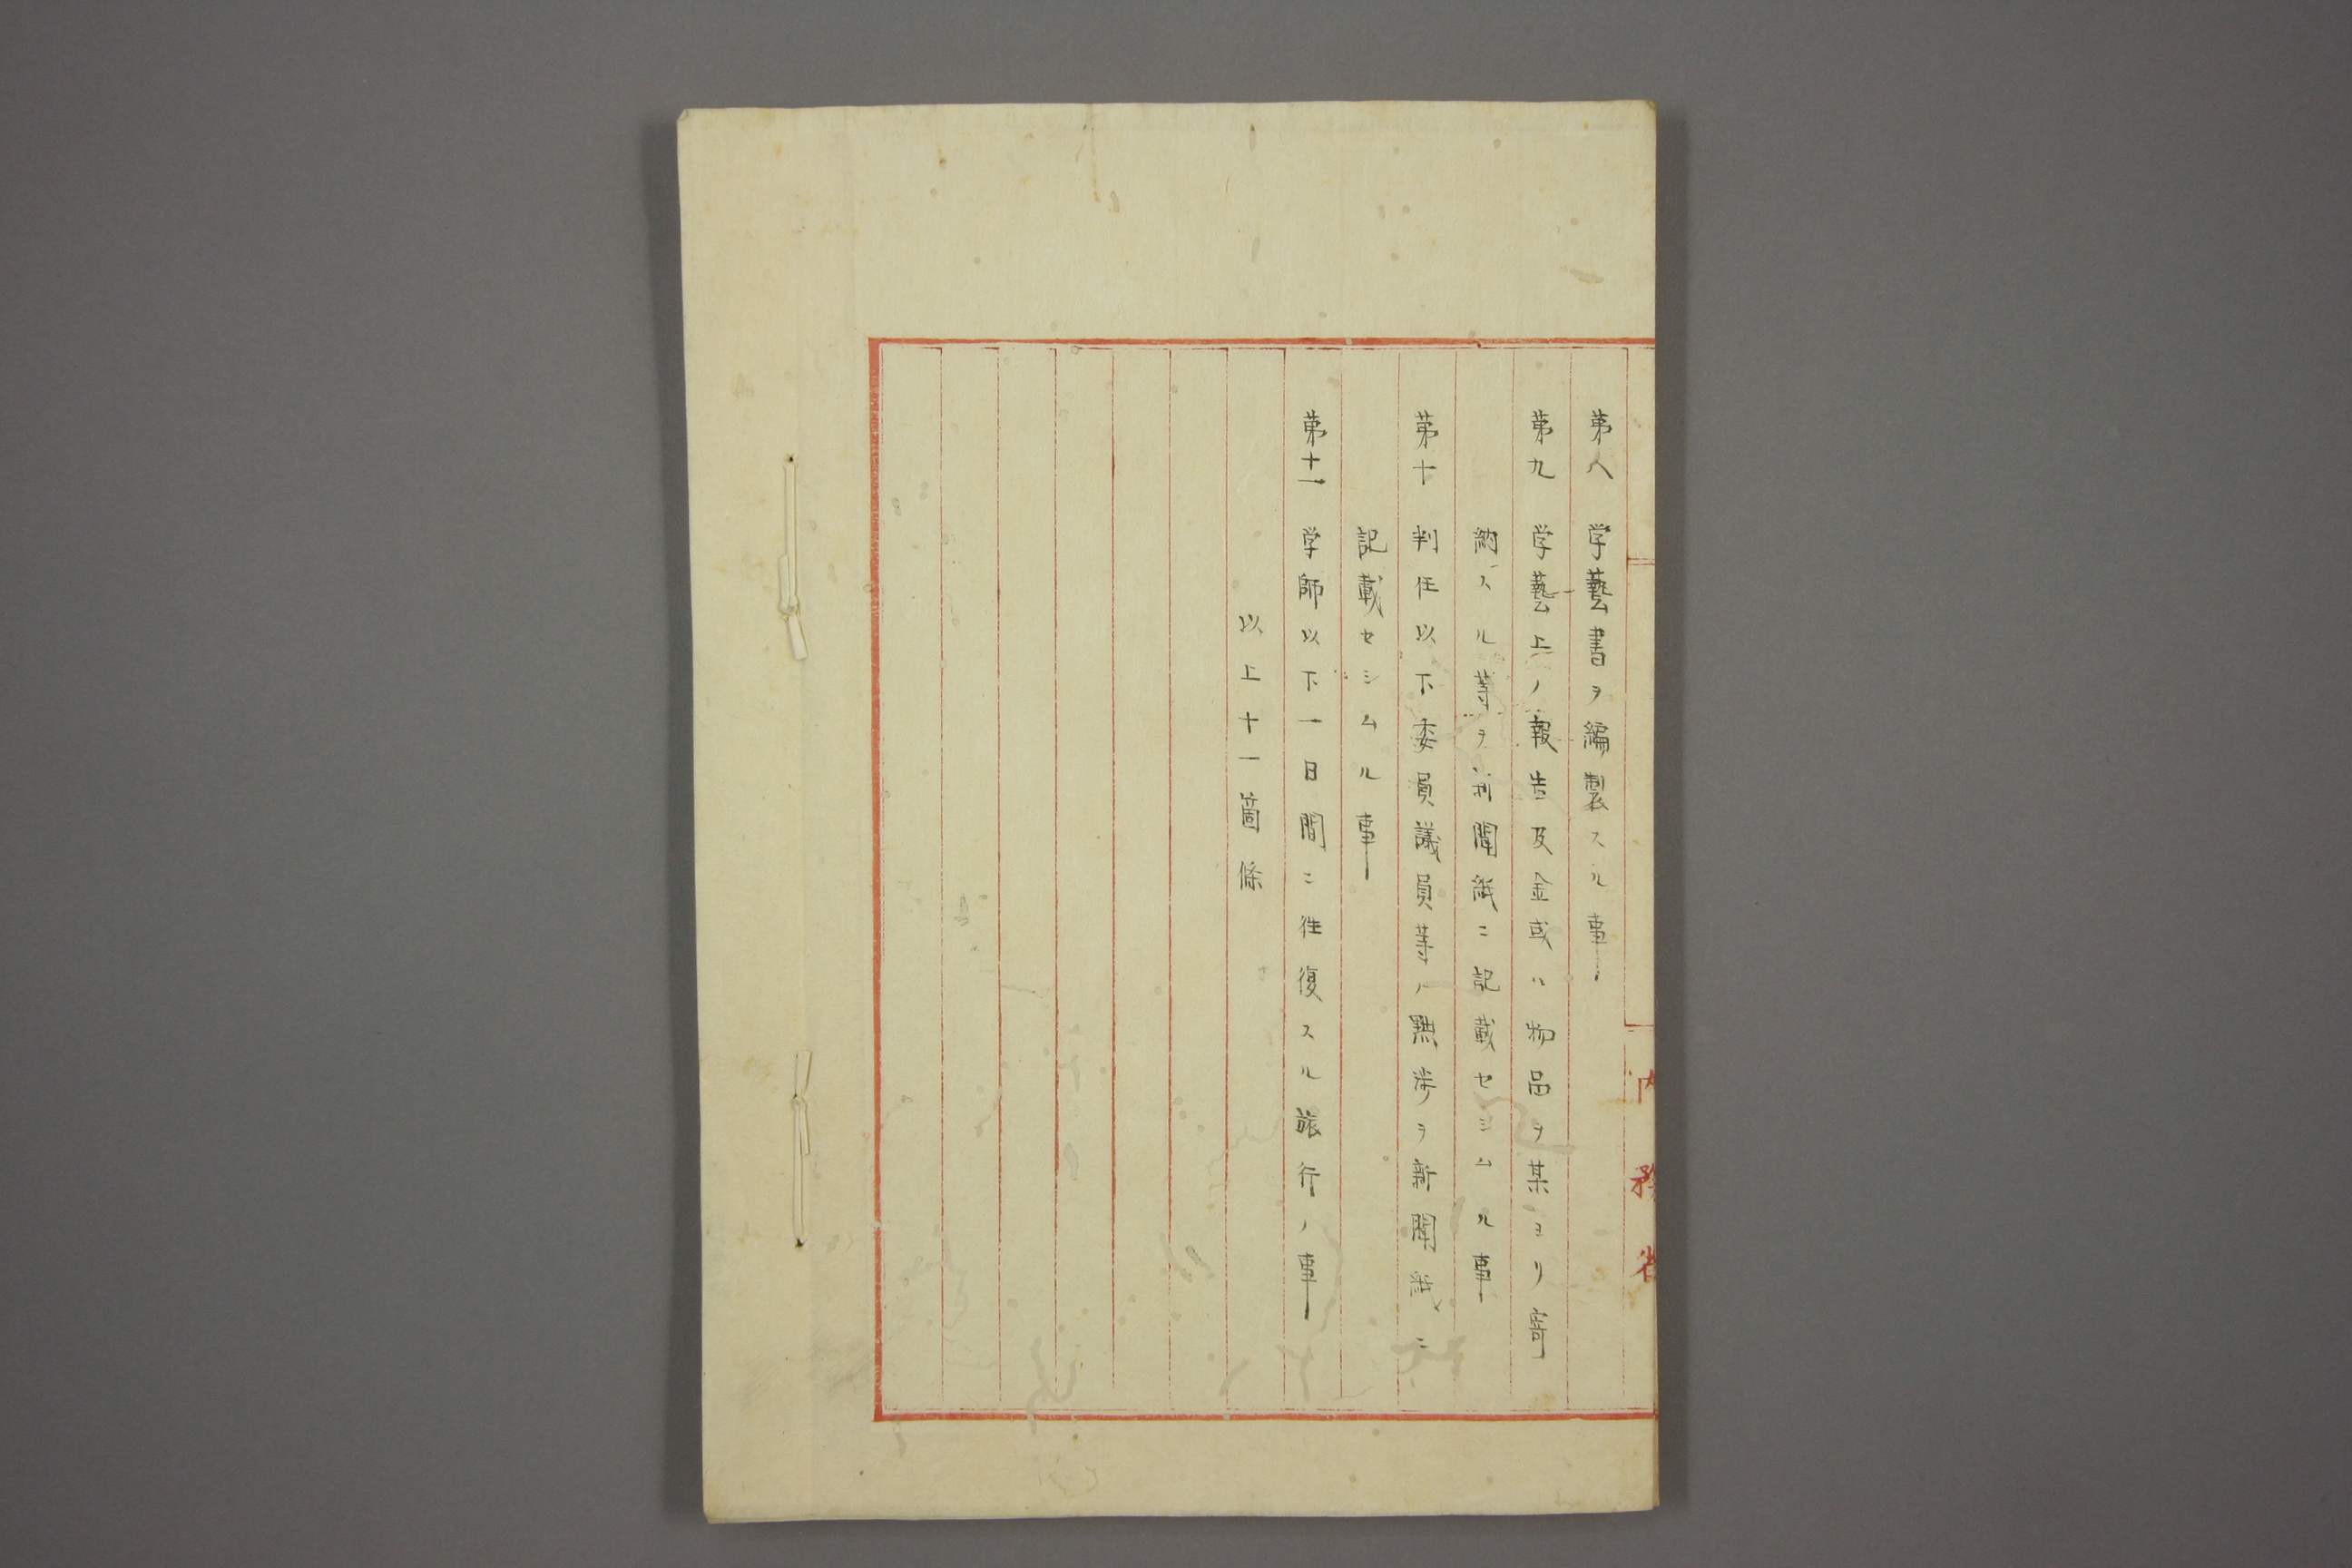 内務省
第八 学藝書ヲ編製スル事
第九 学藝上ノ報告及金或ハ物品ヲ某ヨリ寄
納スル等ヲ新聞紙ニ記載セシムル事
第十 判任以下委員議員等ノ黜陟ヲ新聞紙ニ
記載セシムル事
第十一 学師以下一日間ニ往復スル旅行ノ事
以上十一箇條